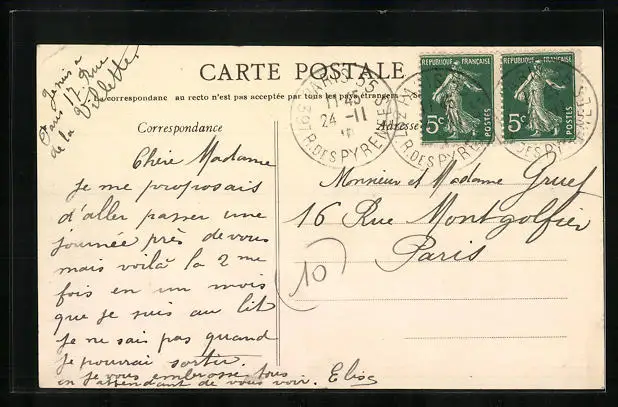 Je suis à
Paris 17 Rue
de la Villette
CARTE POSTALE
La correspondance au recto n'est pas acceptée par tous les pays étrangers
Correspondance
Adresse
REPUBLIQUE FRANÇAISE
5c
POSTES
REPUBLIQUE FRANÇAISE
5c
POSTES
PARIS
24 -11
R. DES PYRENEES
Chère Madame
je me proposais
d'aller passer une
journée près de vous
mais voilà la 2 me
fois en un mois
que je suis au lit
je ne sais pas quand
je pourrai sortir.
je vous embrasse tous
en attendant de vous voir. Elise
Monsieur et Madame Gruet
16 Rue Montgolfier
Paris
10